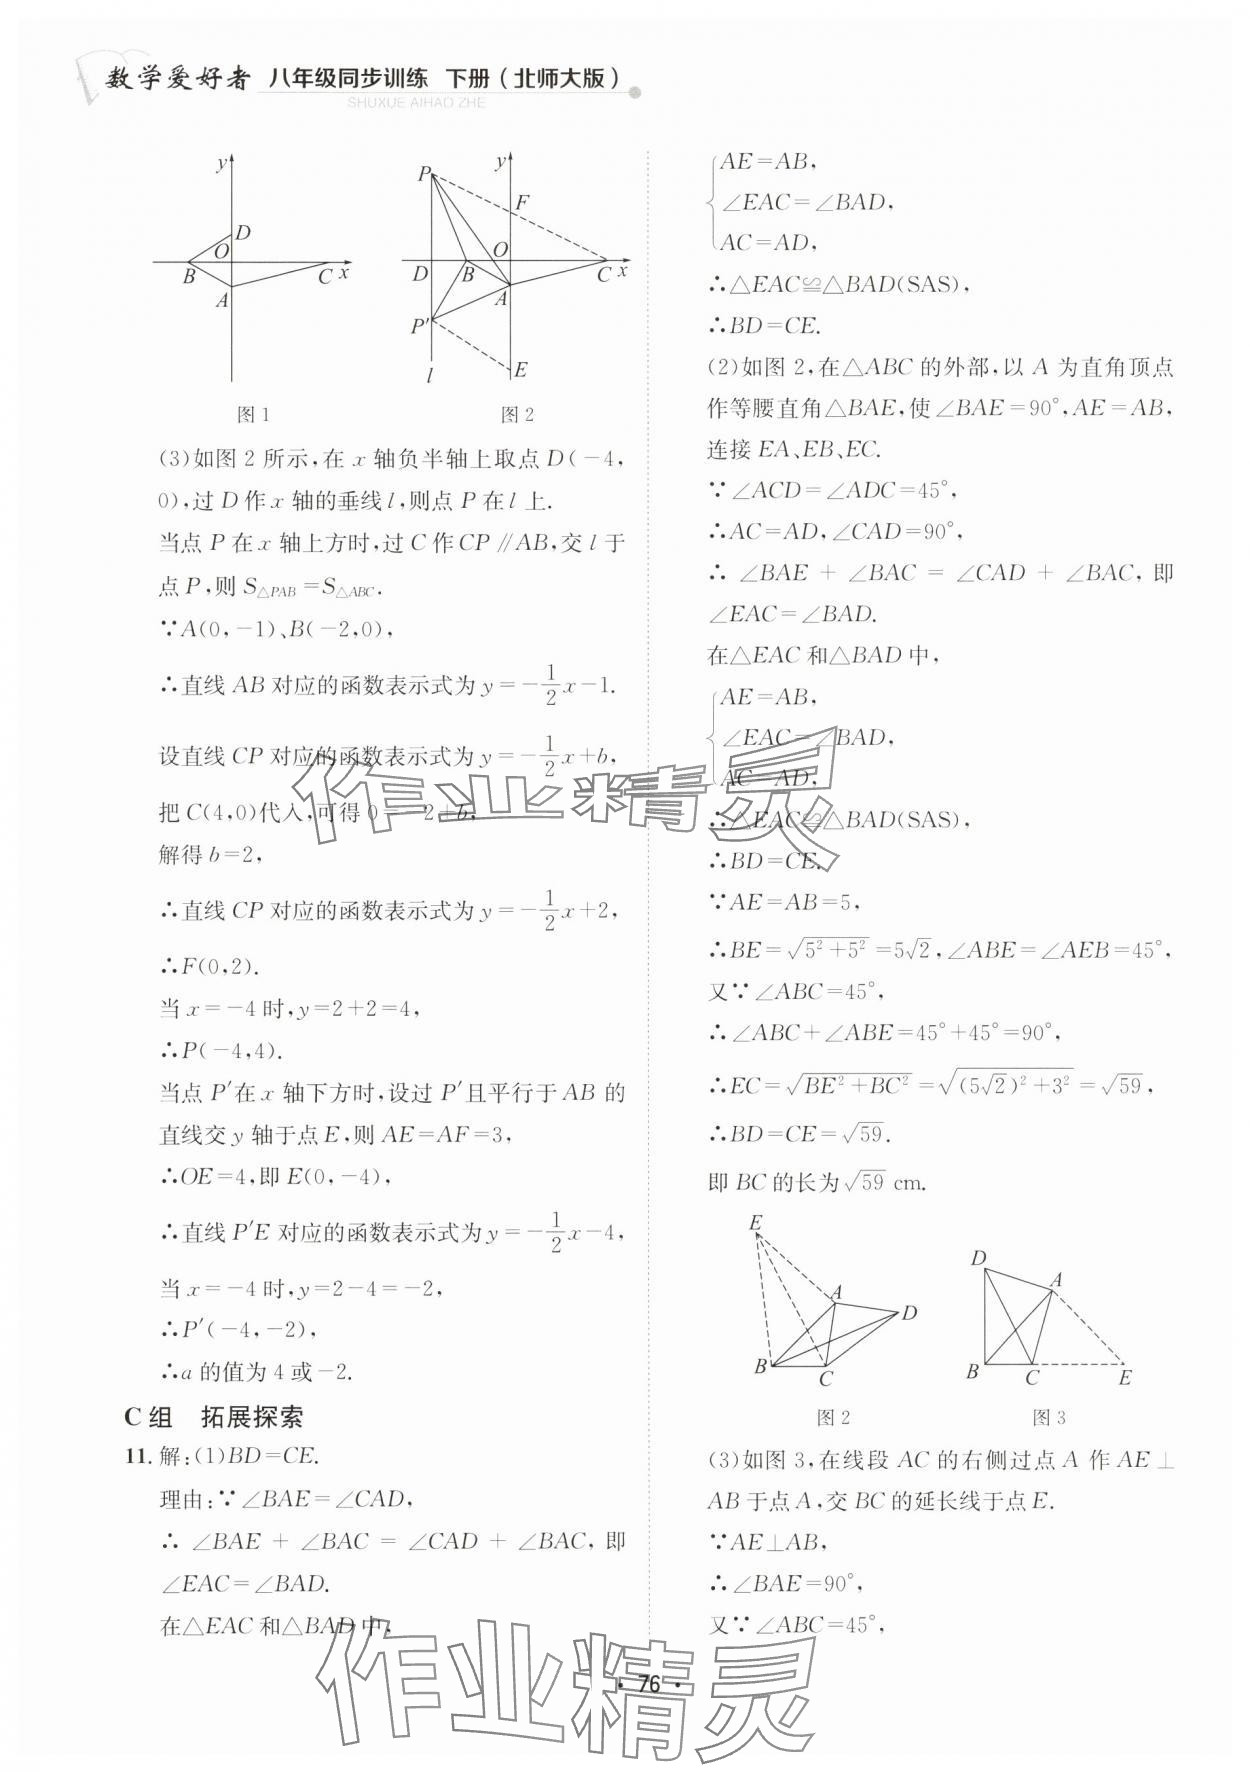 数学爱好者 八年级同步训练 下册(北师大版)
SHUXUE AIHAO ZHE
y
D
O
B
C
x
A
图1
P
y
F
O
D
B
C
x
A
P′
E
l
图2
(3)如图2所示,在x轴负半轴上取点D(-4,
0),过D作x轴的垂线l,则点P在l上.
当点P在x轴上方时,过C作CP∥AB,交l于
点P,则S△PAB=S△ABC.
∵A(0,-1)、B(-2,0),
∴直线AB对应的函数表示式为y=-1/2x-1.
设直线CP对应的函数表示式为y=-1/2x+b,
把C(4,0)代入,可得0=-2+b,
解得b=2,
∴直线CP对应的函数表示式为y=-1/2x+2,
∴F(0,2).
当x=-4时,y=2+2=4,
∴P(-4,4).
当点P′在x轴下方时,设过P′且平行于AB的
直线交y轴于点E,则AE=AF=3,
∴OE=4,即E(0,-4),
∴直线P′E对应的函数表示式为y=-1/2x-4,
当x=-4时,y=2-4=-2,
∴P′(-4,-2),
∴a的值为4或-2.
C组 拓展探索
11.解:(1)BD=CE.
理由:∵∠BAE=∠CAD,
∴∠BAE+∠BAC=∠CAD+∠BAC,即
∠EAC=∠BAD.
在△EAC和△BAD中,
AE=AB,
∠EAC=∠BAD,
AC=AD,
∴△EAC≌△BAD(SAS),
∴BD=CE.
(2)如图2,在△ABC的外部,以A为直角顶点
作等腰直角△BAE,使∠BAE=90°,AE=AB,
连接EA、EB、EC.
∵∠ACD=∠ADC=45°,
∴AC=AD,∠CAD=90°,
∴∠BAE+∠BAC=∠CAD+∠BAC,即
∠EAC=∠BAD.
在△EAC和△BAD中,
AE=AB,
∠EAC=∠BAD,
AC=AD,
∴△EAC≌△BAD(SAS),
∴BD=CE.
∵AE=AB=5,
∴BE=√(5²+5²)=5√2,∠ABE=∠AEB=45°,
又∵∠ABC=45°,
∴∠ABC+∠ABE=45°+45°=90°,
∴EC=√(BE²+BC²)=√((5√2)²+3²)=√59,
∴BD=CE=√59.
即BC的长为√59 cm.
E
A
D
B
C
图2
D
A
B
C
E
图3
(3)如图3,在线段AC的右侧过点A作AE⊥
AB于点A,交BC的延长线于点E.
∵AE⊥AB,
∴∠BAE=90°,
又∵∠ABC=45°,
·76·
作业精灵
作业精灵